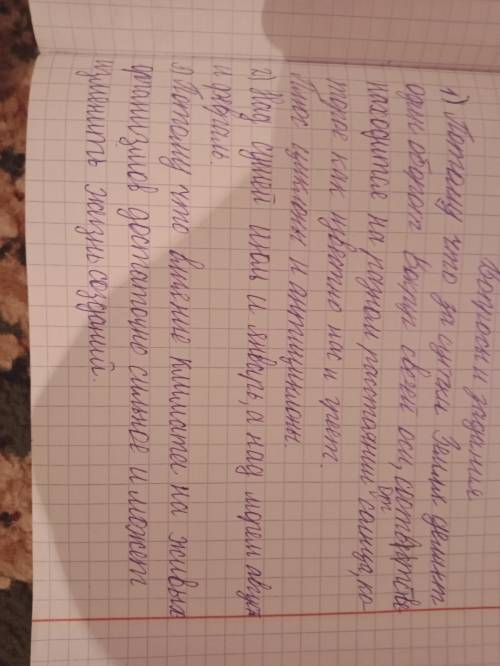 Вопросы и задания
1) Потому что за сутки Земля делает
один оборот вокруг своей оси, соответственно
находится на разном расстоянии солнца, ко-
торое как известно нас и греет.
и циклоны и антициклоны.
2) Над сушей июль и январь, а над морем август
и февраль.
3) Потому что влияние климата на живых
организмов достаточно сильное и может
изменить жизнь созданий.